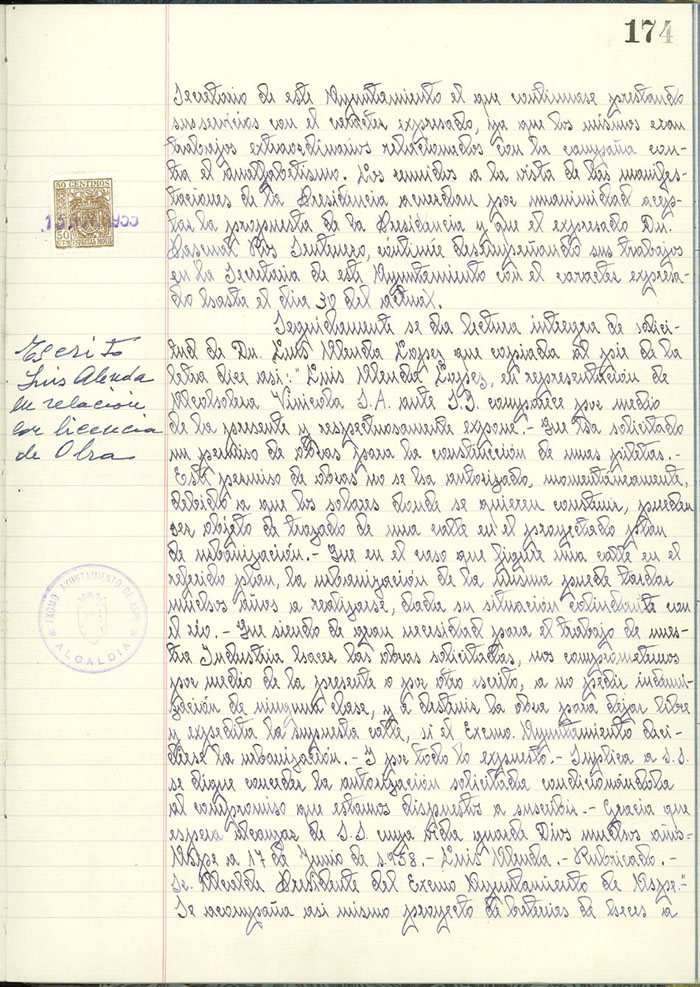 174
Secretario de este Ayuntamiento el que continuase prestando
sus servicios con el carácter expresado, ya que los mismos eran
trabajos extraordinarios relacionados con la campaña con-
tra el analfabetismo. Los reunidos a la vista de las manifes-
taciones de la Presidencia acuerdan por unanimidad acep-
tar la propuesta de la Presidencia y que el expresado Dn.
Pascual Centenero, continúe desempeñando sus trabajos
en la Secretaria de este Ayuntamiento con el caracter expresa-
do hasta el dia 30 del actual.
Seguidamente se da lectura integra de solici-
tud de Dn. Luis Alenda Lopez que copiada al pie de la
letra dice asi: "Luis Alenda Lopez, en representación de
Alcoholera Vinicola S.A. ante S.S. comparece por medio
de la presente y respectuosamente expone.- Que ha solicitado
un permiso de obras para la constitucción de unas piletas.-
Este permiso de obras no se ha autorizado, momentáneamente,
debido a que los solares donde se quieren construir, pueden
ser objeto de trazado de una calle en el proyectado plan
de urbanización.- Que en el caso que figure una calle en el
referido plan, la urbanización de la misma puede tardar
muchos años a realizarse, dada su situación colindante con
el rio.- Que siendo de gran necesidad para el trabajo de nues-
tra Industria hacer las obras solicitadas, nos comprometemos
por medio de la presente o por otro escrito, a no pedir indemni-
zación de ninguna clase, y a destruir la obra para dejar libre
y expedita la supuesta calle, si el Excmo. Ayuntamiento deci-
diese la urbanización.- Y por todo lo expuesto.- Suplica a S.S.
se digne conceder la autorización solicitada condicionándola
al compromiso que estamos dispuestos a suscribir.- Gracia que
espera alcanzar de S.S. cuya vida guarde Dios muchos años.-
Aspe a 17 de Junio de 1.958.- Luis Alenda.- Rubricado.-
Sr. Alcalde Presidente del Excmo Ayuntamiento de Aspe."
Se acompaña asi mismo proyecto de baterias de heces a
50 CENTIMOS
Escrito
Luis Alenda
en relación
con licencia
de Obra
EXCMO AYUNTAMIENTO DE ASPE
ALCALDIA